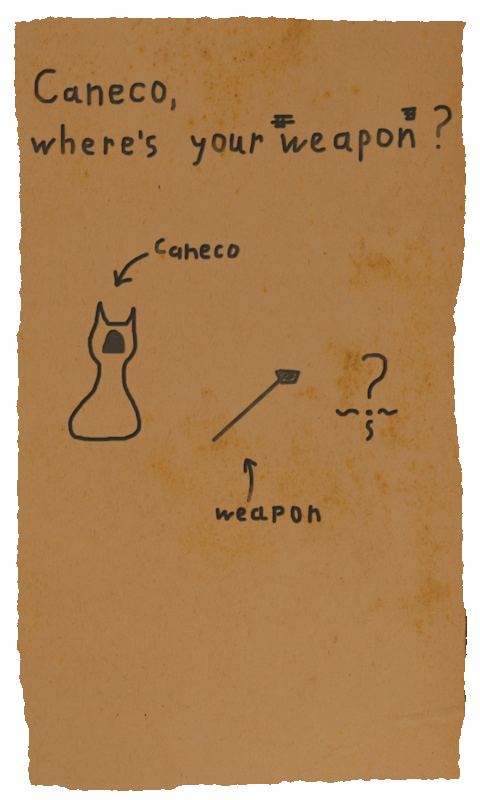 Caneco,
where's your "weapon"?
Caneco
?
weapon